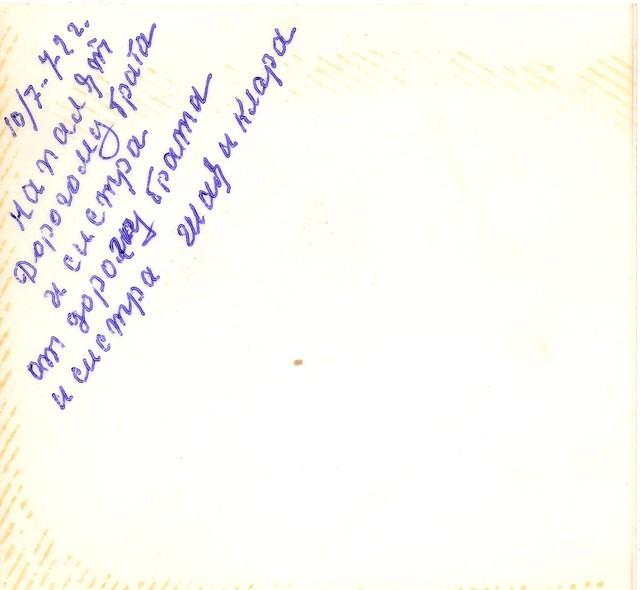 10/7-72г.
на памят
Дорогому брата
и систра
от дорогу брата
и систра Шая и Клара